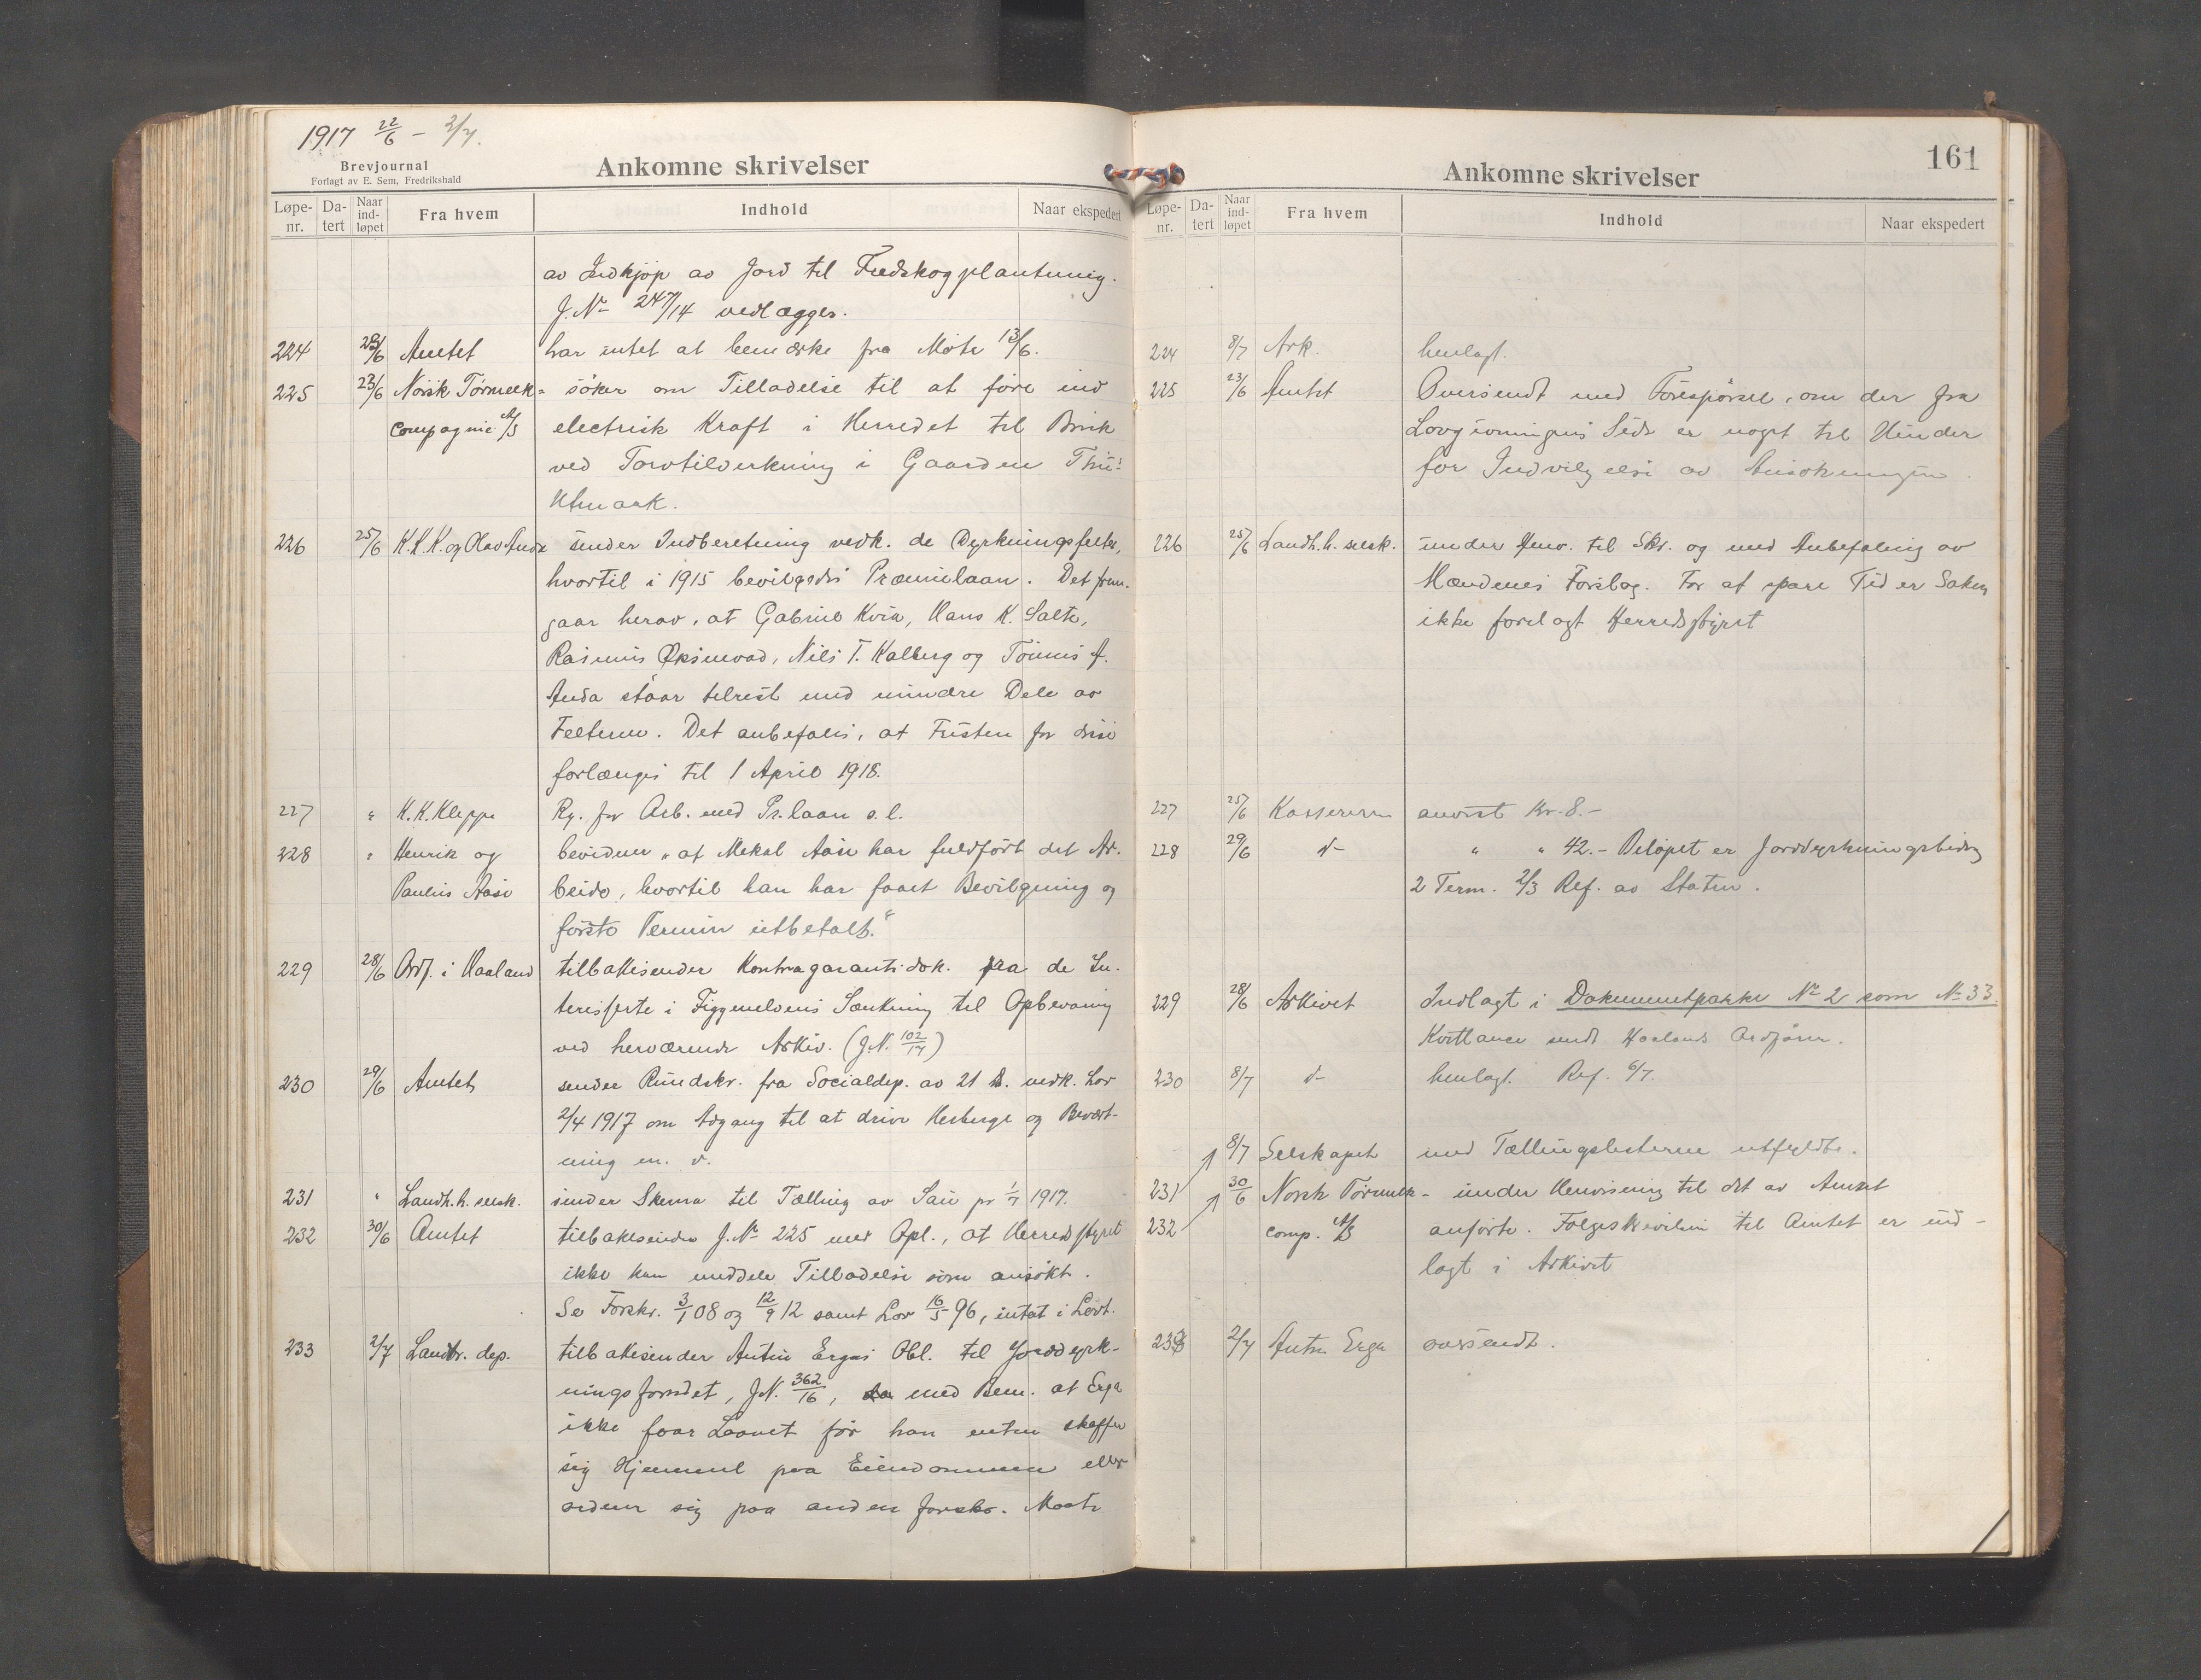 1917 22/6 - 2/7.
Brevjournal
Forlagt av E. Sem, Fredrikshald
Ankomne skrivelser
Løpe-nr. Da-tert Naar ind-løpet Fra hvem Indhold Naar ekspedert
av Indkjøp av Jord til Fredskogplantning.
J.No 247/14 vedlægges.
224 23/6 Amtet har intet at bemerke fra Møte 13/6.
225 23/6 Norsk Tørmelk- søker om Tilladelse til at føre ind
Compagnie A/S electrisk Kraft i Herredet til Bruk
ved Torvtilvirkning i Gaarden Thu's
Utmark.
226 25/6 K.K.K. og Olav Anda sender Indberetning vedk. de Dyrkningsfelter,
hvortil i 1915 bevilgedes Præmielaan. Det frem-
gaar herav, at Gabriel Kvia, Hans K. Salte,
Rasmus Øksnevad, Nils T. Kalberg og Tønnes A.
Anda staar tilrest med mindre Dele av
Felterne. Det anbefales, at Fristen for disse
forlænges til 1 April 1918.
227 " K.K. Kleppe Rg. for Arb. med Pr.laan s.l.
228 " Henrik og bevidner "at Mekal Aase har fuldført det Ar-
Paulus Aase beide, hvortil han har faaet Bevilgning og
første Termin utbetalt."
229 28/6 Ordf. i Haaland tilbakesender Kontragarantidok. fra de In-
teresserte i Figgenelvens Sænkning til Opbevaring
ved herværende Arkiv. (J.N. 102/17)
230 29/6 Amtet sender Rundskr. fra Socialdep. av 21 ds. vedk. Lov
2/4 1917 om Adgang til at drive Herberge og Bevært-
ning m. v.
231 " Landh.h. selsk. sender Skema til Tælling av Sau pr 1/7 1917.
232 30/6 Amtet tilbakesender J.No 225 med Opl., at Herredsstyret
ikke kan meddele Tilladelse som ansøkt.
Se Forskr. 3/1 08 og 12/9 12 samt Lov 16/5 96, intat i Lovt.
233 2/7 Landbr. dep. tilbakesender Anton Ergas Obl. til Jorddyrk-
ningsfondet, J.N. 362/16, med Bem. at Erga
ikke faar Laanet før han enten skaffer
sig Hjemmel paa Eiendommen eller
ordner sig paa anden foresk. Maate
161
Ankomne skrivelser
Løpe-nr. Da-tert Naar ind-løpet Fra hvem Indhold Naar ekspedert
224 8/7 Ark. henlagt.
225 23/6 Amtet Oversendt med Forespørsel, om der fra
Lovgivningens Side er noget til Hinder
for Indvilgelse av Ansøkningen.
226 25/6 Landh.h. selsk. under Henv. til Skr. og med Anbefaling av
Mændenes Forslag. For at spare Tid er Saken
ikke forelagt Herredsstyret
227 25/6 Kassereren anvist Kr. 8.-
228 29/6 d- " " 42.- Beløpet er Jorddyrkningsbidrag
2 Term. 2/3 Ref. av Staten.
229 28/6 Arkivet Indlagt i Dokumentpakke No 2 som No 33.
Kvittance sendt Haalands Ordfører.
230 8/7 d- henlagt. Ref. 6/7.
8/7 Selskapet med Tællingslisterne utfyldte.
231 30/6 Norsk Tørmelk- under Henvisning til det av Amtet
232 comp. A/S anførte. Følgeskrivelsen til Amtet er ind-
lagt i Arkivet
233 2/7 Anton Erga oversendt.